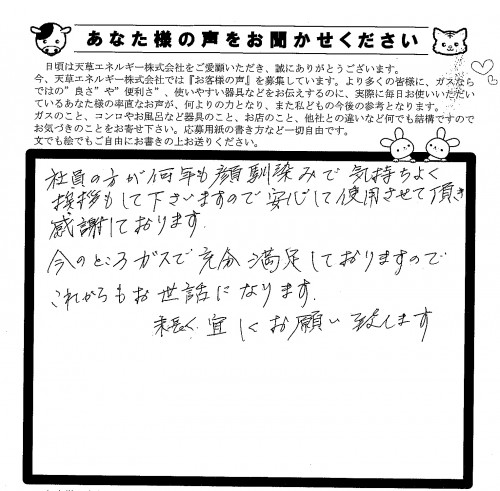 あなた様の声をお聞かせください
日頃は天草エネルギー株式会社をご愛顧いただき、誠にありがとうございます。
今、天草エネルギー株式会社では『お客様の声』を募集しています。より多くの皆様に、ガスなら
ではの”良さ”や”便利さ”、使いやすい器具などをお伝えするのに、実際に毎日お使いいただい
ているあなた様の率直なお声が、何よりの力となり、また私どもの今後の参考となります。
ガスのこと、コンロやお風呂など器具のこと、お店のこと、他社との違いなど何でも結構ですので
お気づきのことをお寄せ下さい。応募用紙の書き方など一切自由です。
文でも絵でもご自由にお書きの上お送りください。
社員の方が何年も顔馴染みで気持ちよく
挨拶もして下さいますので安心して使用させて頂き
感謝しております.
今のところガスで充分満足しておりますので
これからもお世話になります.
末長く宜しくお願い致します